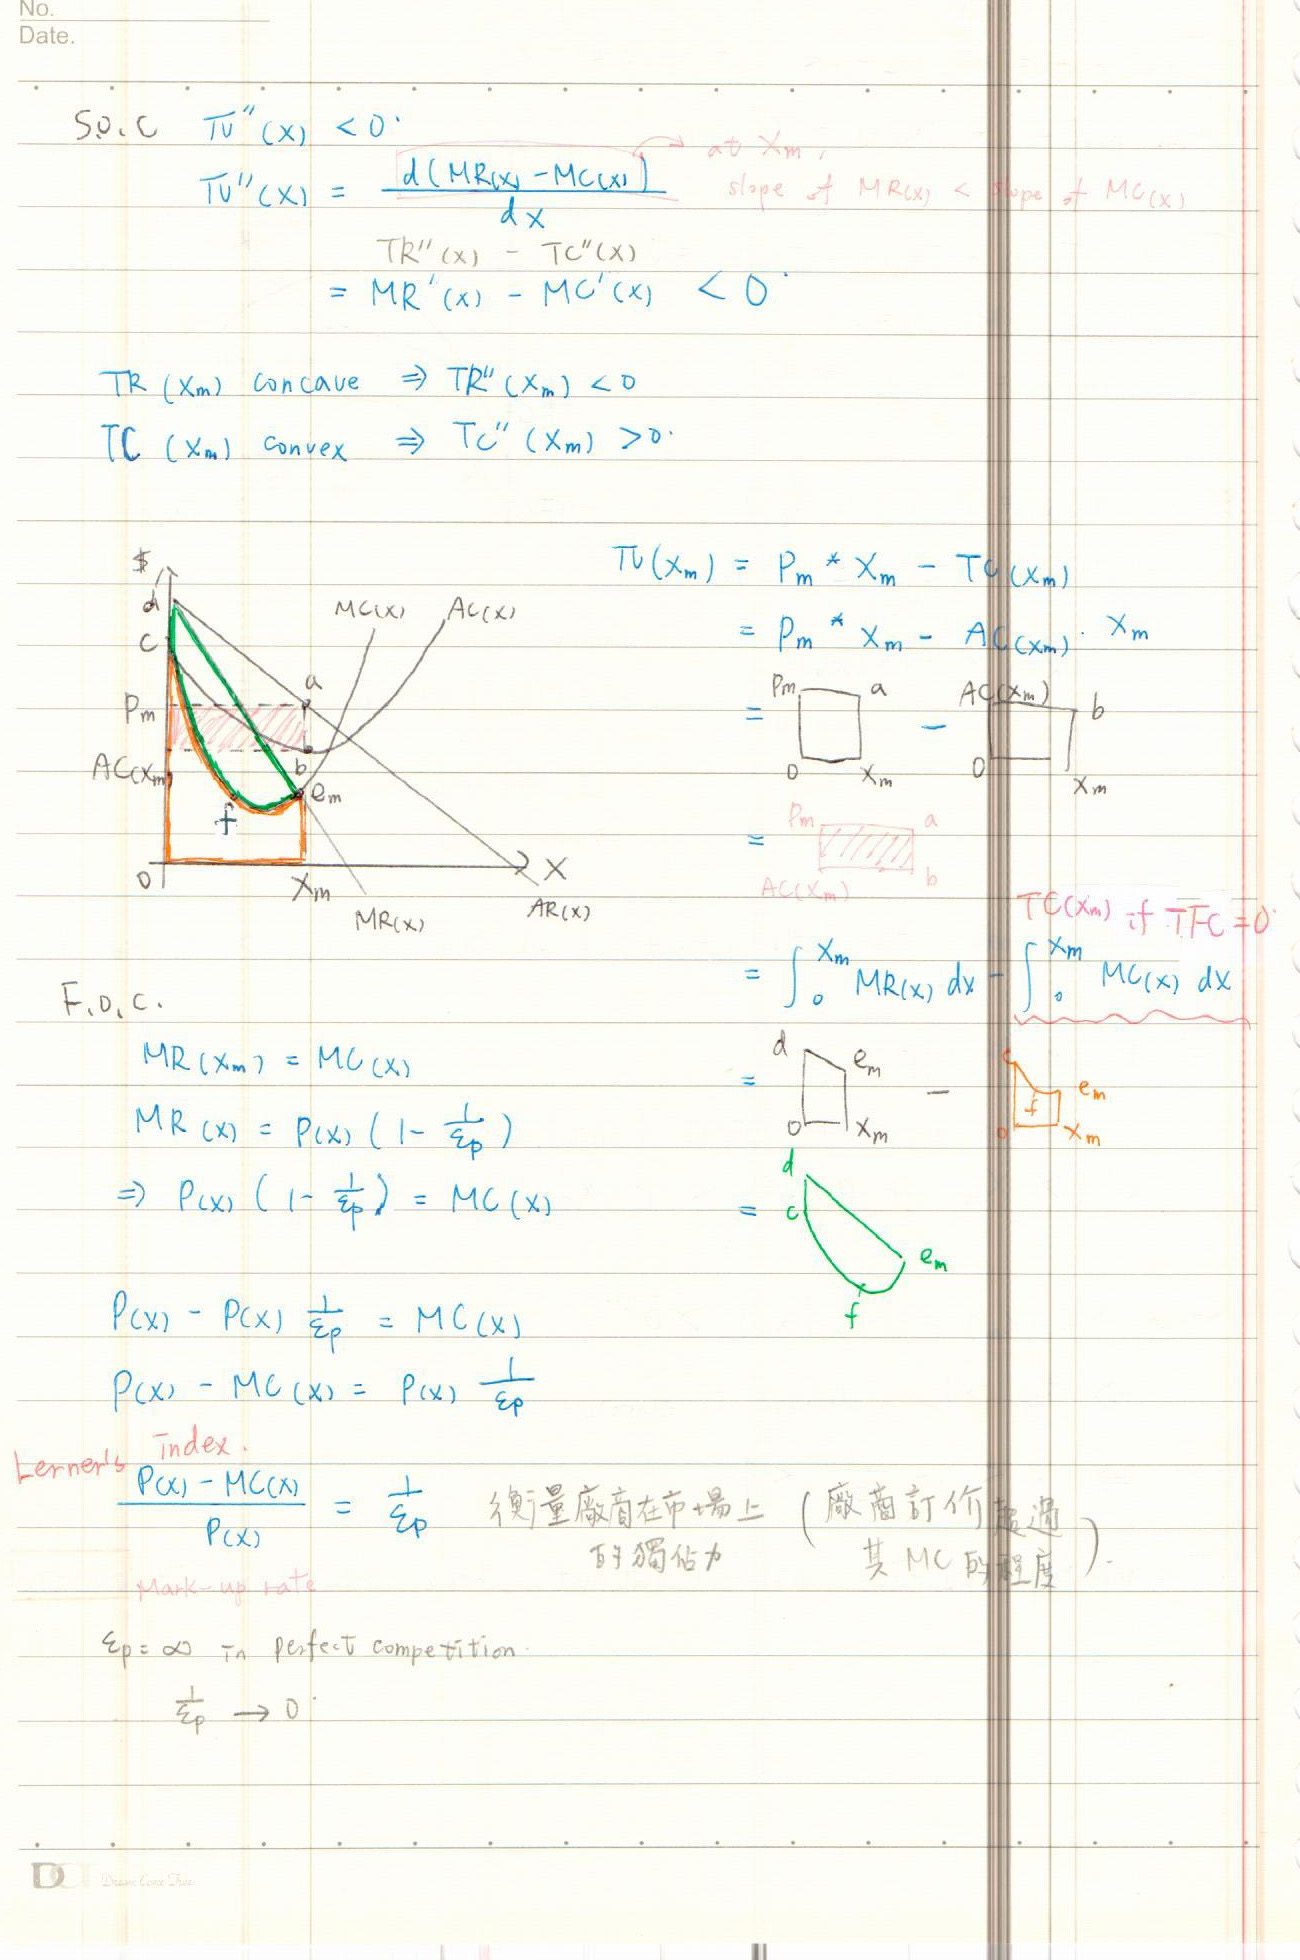 No.
Date.
S.O.C π''(x) < 0.
π''(x) = d(MR(x) - MC(x)) / dx → at Xm,
slope of MR(x) < slope of MC(x)
TR''(x) - TC''(x)
= MR'(x) - MC'(x) < 0.
TR(Xm) concave ⇒ TR''(Xm) < 0
TC(Xm) convex ⇒ TC''(Xm) > 0.
$
d
c
Pm
AC(Xm)
0
Xm
X
MC(x)
AC(x)
a
b
em
f
MR(x)
AR(x)
π(Xm) = Pm * Xm - TC(Xm)
= Pm * Xm - AC(Xm) · Xm
= Pm a 0 Xm - AC(Xm) b 0 Xm
= Pm a AC(Xm) b
TC(Xm) if TFC = 0.
= ∫0^Xm MR(x) dx - ∫0^Xm MC(x) dx
= d em 0 Xm - c em f 0 Xm
= d c em f
F.O.C.
MR(Xm) = MC(x)
MR(x) = P(x) (1 - 1/εp)
⇒ P(x) (1 - 1/εp) = MC(x)
P(x) - P(x) 1/εp = MC(x)
P(x) - MC(x) = P(x) 1/εp
Lerner's index.
(P(x) - MC(x)) / P(x) = 1/εp 衡量廠商在市場上的獨佔力 (廠商訂价超過其MC的程度).
Mark-up rate
εp = ∞ in perfect competition.
1/εp → 0.
Dream Come True